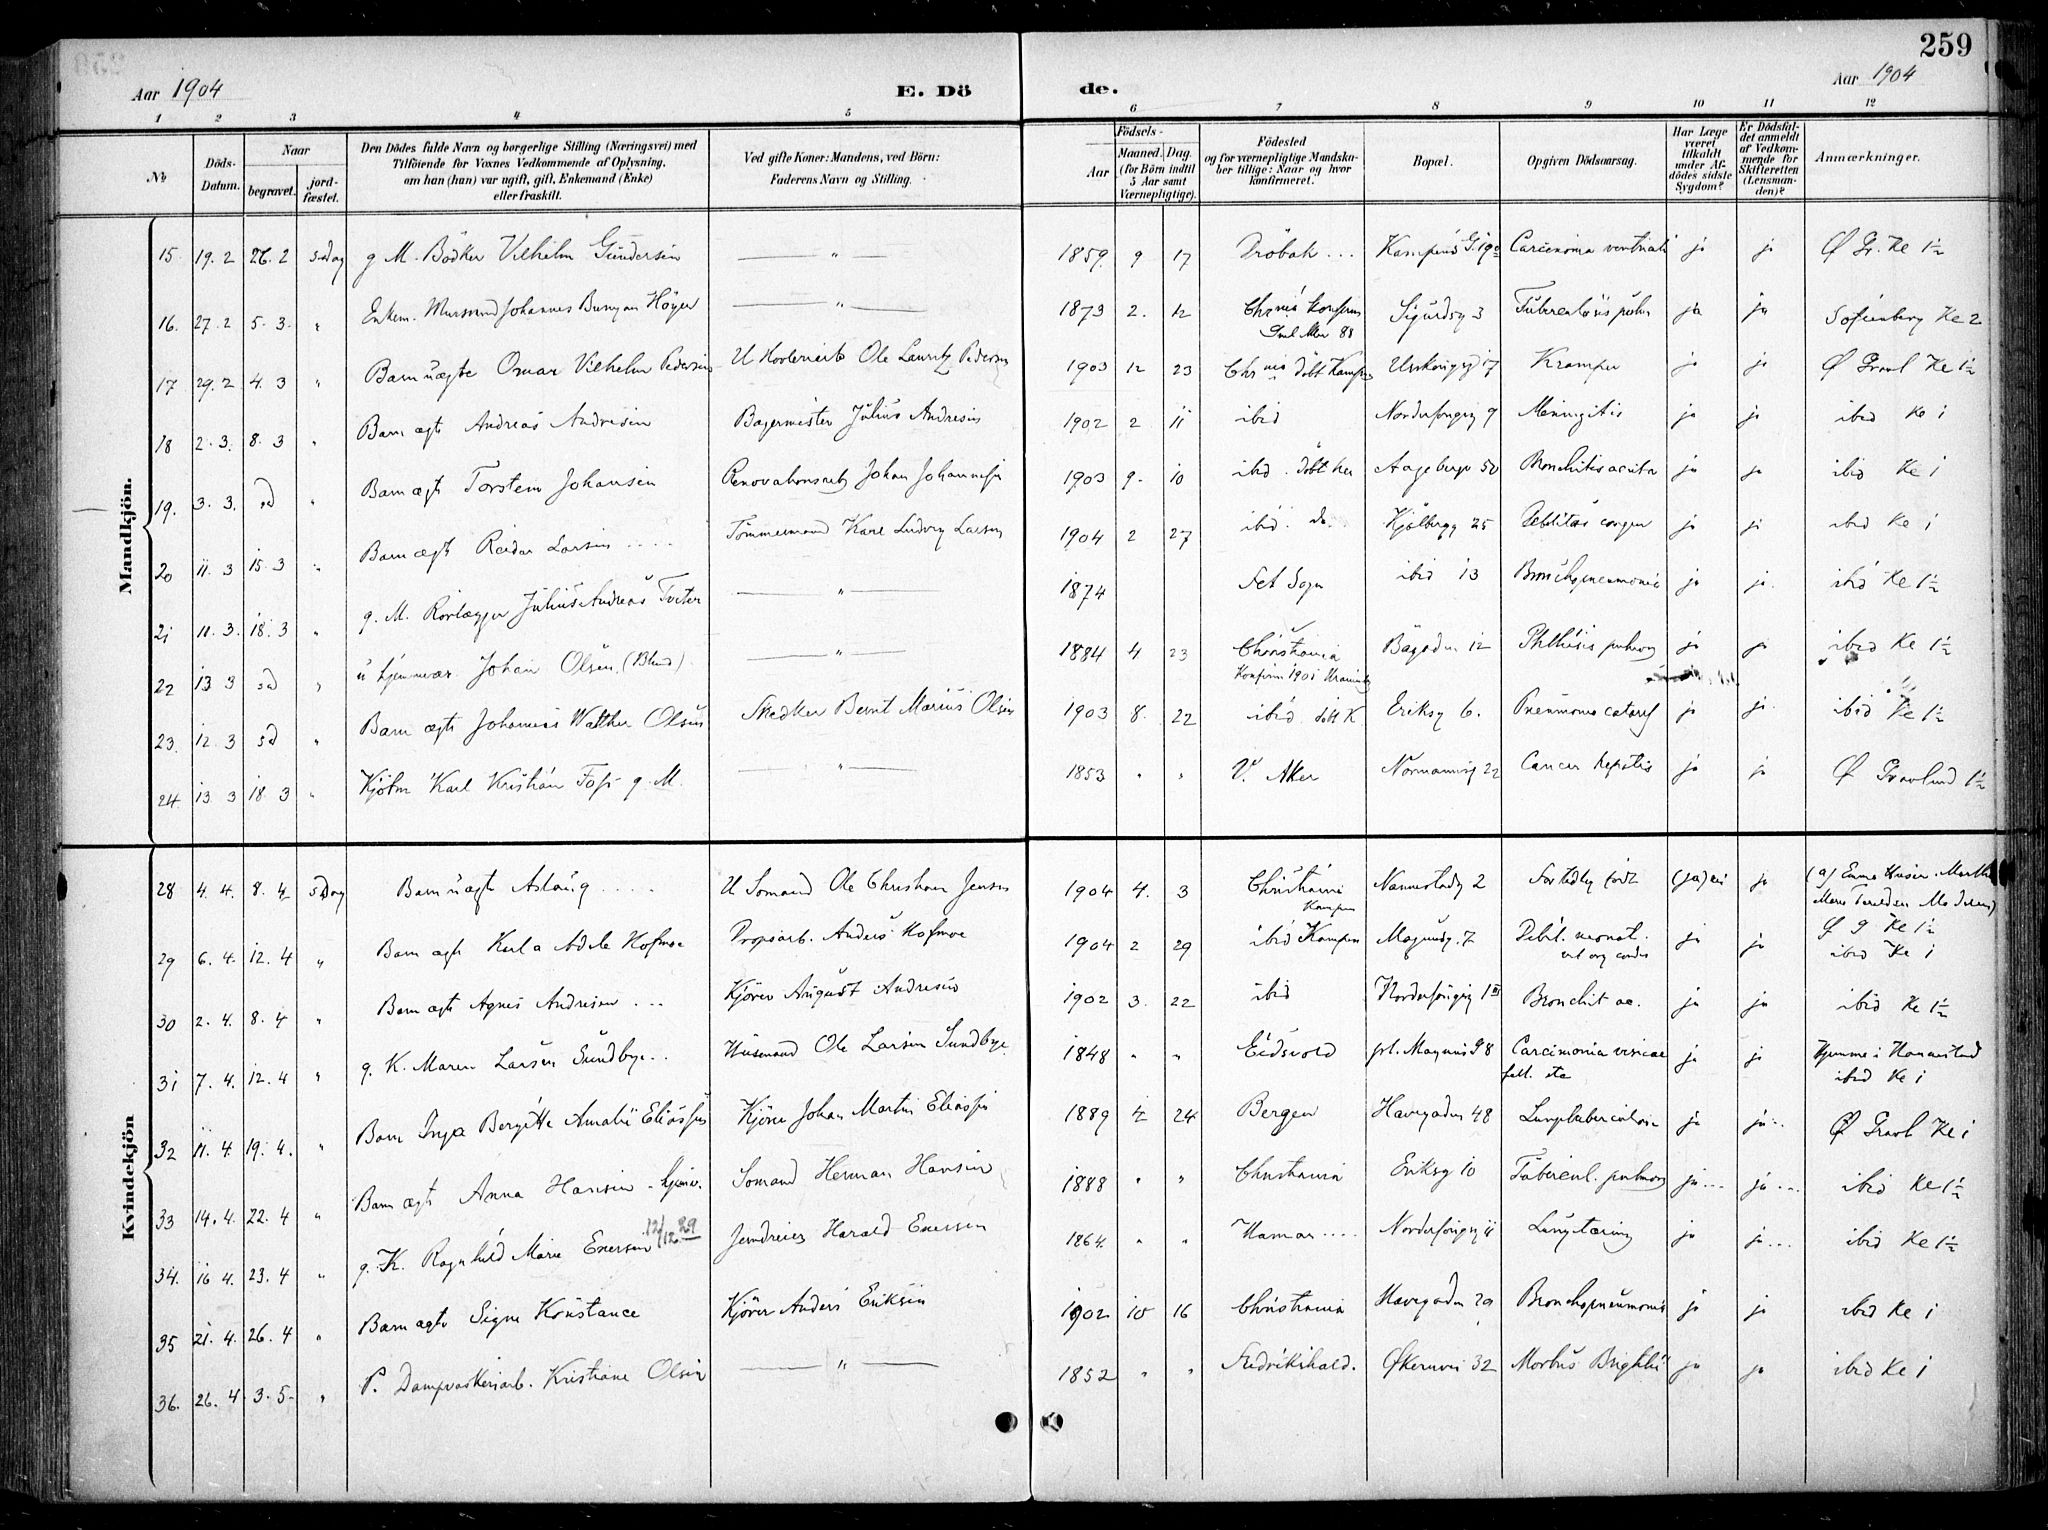 259
Aar 1904
E. Dö
de.
Aar 1904
1 2 3 4 5 6 7 8 9 10 11 12
№
Döds-Datum.
Naar
begravet.
jord-fæstet.
Den Dödes fulde Navn og borgerlige Stilling (Næringsvei) med
Tilföiende for Voxnes Vedkommende af Oplysning,
om han (hun) var ugift, gift, Enkemand (Enke)
eller fraskilt.
Ved gifte Koner: Mandens, ved Börn:
Faderens Navn og Stilling.
Födsels-
Aar
Maaned. Dag.
(for Börn indtil
5 Aar samt
Værnepligtige).
Födested
og for værnepligtige Mandska-
ber tillige: Naar og hvor
konfirmeret.
Bopæl.
Opgiven Dödsaarsag.
Har Læge
været
tilkaldt
under Af-
dödes sidste
Sygdom?
Er Dödsfal-
det anmeldt
af Vedkom-
mende for
Skifteretten
(Lensman-
den)?
Anmærkninger.
Mandkjön.
15. 19. 2 26. 2 s. dag g M. Bödker Vilhelm Gundersen — " — 1859. 9 17 Dröbak ... Kampens G. 19 Carcinoma ventriculi ja ja Ø Gr. Ke 1½
16. 27. 2 5. 3. " Enkem. Murmand Johannes Bunyan Höyer — " — 1873 2. 12 Chr.nia konfirm 88 Sigurdsg 3 Tuberculosis pulm ja ja Sofienberg Ke 2
17 29. 2 4. 3 " Barn uægte Omar Vilhelm Pedersen U Ole Lauritz Pedersen 1903 12 23 Chr.nia döbt Kampen 17 Kramper ja ja Ø Gravl Ke 1½
18 2. 3. 8. 3 " Barn ægt Andreas Andresen Bagermester Julius Andresen 1902 2 11 ibid 9 Meningitis ja ja ibid Ke 1
19. 3. 3. sd " Barn ægt Torstein Johansen Renovationsarb Johan Johannesen 1903 9. 10 ibid. döbt her Aagebergv 50 Bronchitis acuta ja ja ibid Ke 1
20 11. 3 15. 3 " Barn ægt Reidar Larsen .... Tömmermand Karl Ludvig Larsen 1904 2 27 ibid. do. Kjölbergg 25 Debilitas congen ja ja ibid Ke 1
21 11. 3. 18. 3 " g. M. Rörlægger Julius Andreas Tveter — " — 1874 Fet Sogn ibid 13 Bronchopneumonie ja ja. ibid Ke 1½
22 13 3 sd " u hjemmevær. Johan Olsen. (Blind). — " — 1884 4 23 Christiania Konfirm 1901 12 Phthisis pulmon ja ja ibid Ke 1½
23. 12. 3 sd " Barn ægt Johannes Walther Olsen Snedker Bernt Marius Olsen 1903 8. 22 ibid. döbt K Eriksg 6. Pneumonia catarrh ja ja. ibid Ke 1½
24. 13 3 18. 3 " Kjötm Karl Kristian Foss g. M. — " — 1853 " " V. Aker Normannsg 22 Cancer hepatis ja ja Ø Gravlund 1½
Kvindekjön
28 4. 4. 8. 4 s. dag Barn uægt Aslaug ..... U Sömand Ole Christian Jensen 1904 4. 3 Christiania Kampen Nannestadg 2 (ja) ei ja
29 6. 4. 12. 4 " Barn ægt Karla Adele Hofmoe Propsarb. Anders Hofmoe 1904 2 29 ibid Kampen Magnusg. 7 Debil. neonat. ja ja Ø g Ke 1½ ibid Ke 1
30 2. 4. 8. 4 " Barn ægt Agnes Andresen ... Kjörer August Andresen 1902 3. 22 ibid 1 III Bronchit ac. ja ja ibid Ke 1½
31 7. 4. 12. 4 " g. K. Maren Larsen Sundbye.. Husmand Ole Larsen Sundbye 1848 " " Eidsvold Magnus g 8 Carcinoma vesicae fell. etc ja ja Hjemme i ibid Ke 1
32 11. 4. 19. 4. " Barn Inga Bergitte Amalie Eliassen Kjörer Johan Martin Eliassen 1889 4 24 Bergen Havegaden 48 Lungetuberculose ja ja.. Ø Gravl Ke 1
33 14. 4. 22. 4 " Barn ægt Anna Hansen - hjemv. Sömand Herman Hansen 1888 " " Christiania Eriksg 10 Tuberkul. pulmon ja ... ja ... ibid Ke 1½
34. 16 4. 23. 4 " g. K. Ragnhild Marie Enersen 12/12 29 Jerndreier Harald Enersen 1864. " " Hamar .... 11 Lungetæring ja ja ... ibid Ke 1½
35 21. 4. 26. 4 " Barn ægt Signe Konstance Kjörer Anders Eriksen 1902 10 16 Christiania Havegaden 29 Bronchopneumonie ja ja ibid Ke 1
36. 26. 4 3. 5. " P. Dampvaskeriarb. Kristiane Olsen — " — 1852 " " Fredrikshald. Økernvei 32 Morbus Brightii ja ja ibid Ke 1